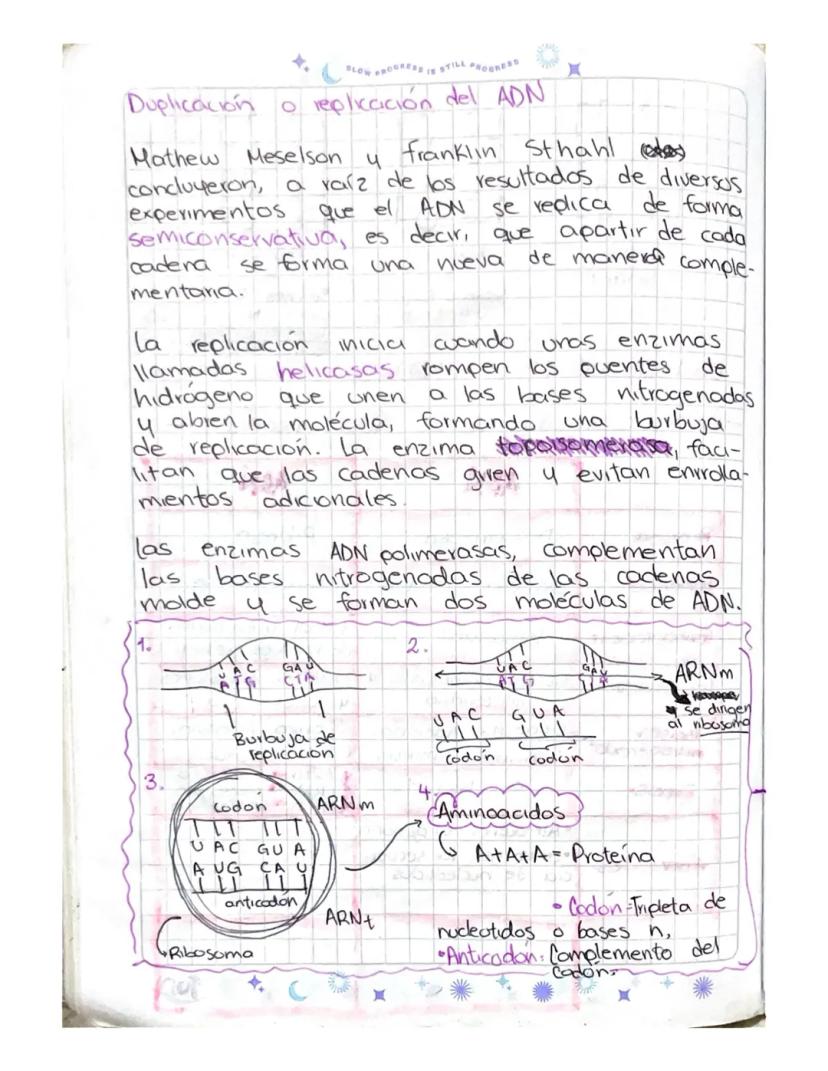 SLOW PROGRESS IS STILL PROGRESS
Duplicación o replicación del ADN
Mathew Meselson y franklin Sthahl
concluyeron, a raíz de los resultados de diversos
experimentos que el ADN se replica de forma
semiconservativa, es decir, que apartir de cada
cadena se forma una nueva de manera comple-
mentaria.
La replicación inicia cuando unas enzimas
llamadas helicasas rompen los puentes de
hidrógeno que unen a las bases nitrogenadas
y abren la molécula, formando una burbuja
de replicación. La enzima topoisomerasa, faci-
litan que las cadenas giren y evitan enrrolla-
mientos adicionales.
las enzimas ADN polimerasas, complementan
las bases nitrogenadas de las cadenas
molde y se forman dos moléculas de ADN.
1.
U A C GAU
A T G CTA
Burbuja de
replicación
2.
UAC GAU
ATG
ARNm
se dirigen
al ribosoma
UAC GUA
codón codón
3.
codón
ARNm
U A C G U A
A U G C A U
anticodón
ARNt
Ribosoma
4.
Aminoacidos
A+A+A = Proteína
• Codón=Tripleta de
nucleotidos o bases n,
•Anticodón: Complemento del
codón.